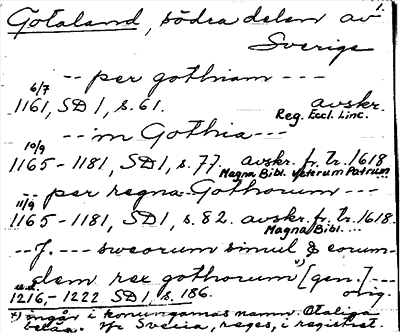 1.
Götaland, södra delen av
Sverige
-- per gothiam ---
6/7
1161, SD 1, s. 61. avskr.
Reg. Eccl. Linc.
-- in Gothia ---
10/9
1165-1181, SD 1, s. 77. avskr. fr. tr. 1618
Magna Bibl. Veterum Patrum
-- per regna Gothorum ---
11/9
1165-1181, SD 1, s. 82. avskr. fr. tr. 1618.
Magna Bibl. ...
-- J. --- sweorum simul & eorum-
dem rex gothorum *) [gen.] ---
u.d.
1216-1222 SD 1, s. 186. orig.
*) ingår i konungarnas namn. Otalig
belägg. Jfr Svecia, reges, i registret.